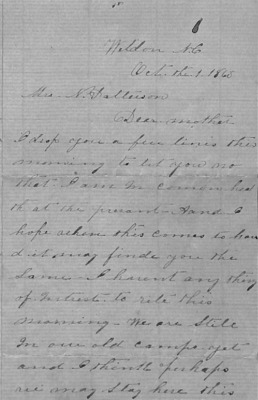 Weldon N.C.
Oct. the 1 1865
Mrs N. Patterson
Dear mother
I drop you a few lines this
morning to let you no
that I am in common heal
th at the present and I
hope when this comes to han
d it may finde you the
same. I havent any thing
of intrest to rite this
morning. We are Stile
in our old camps yet
and I think perhaps
we may stay here this